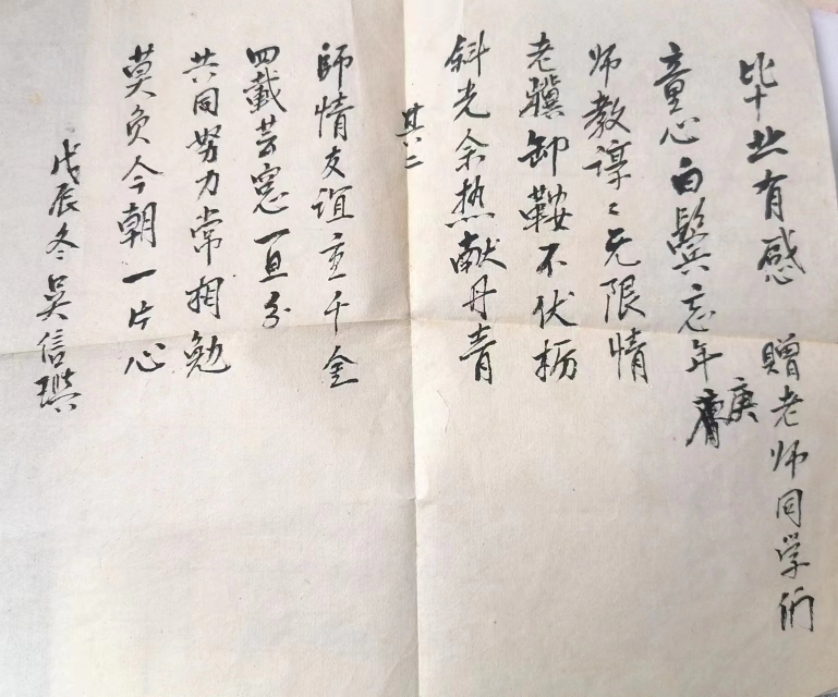 毕业有感 赠老师同学们
童心白鬓忘年庚
师教谆〻无限情
老骥卸鞍不伏枥
斜光余热献丹青
其二
師情友谊重千金
四載芸窓一旦分
共同努力常相勉
莫负今朝一片心
戊辰冬吴信